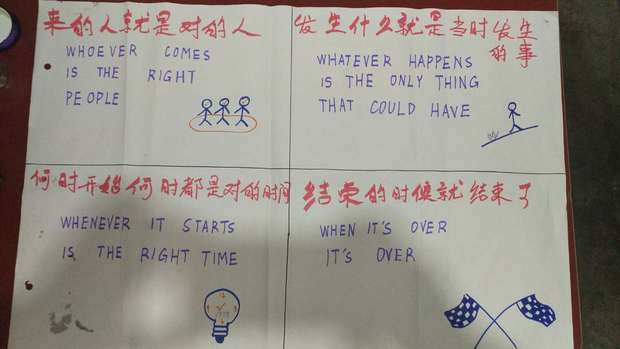 来的人就是对的人
WHOEVER COMES
IS THE RIGHT
PEOPLE
发生什么就是当时发生
的事
WHATEVER HAPPENS
IS THE ONLY THING
THAT COULD HAVE
何时开始何时都是对的时间
WHENEVER IT STARTS
IS THE RIGHT TIME
结束的时候就结束了
WHEN IT'S OVER
IT'S OVER